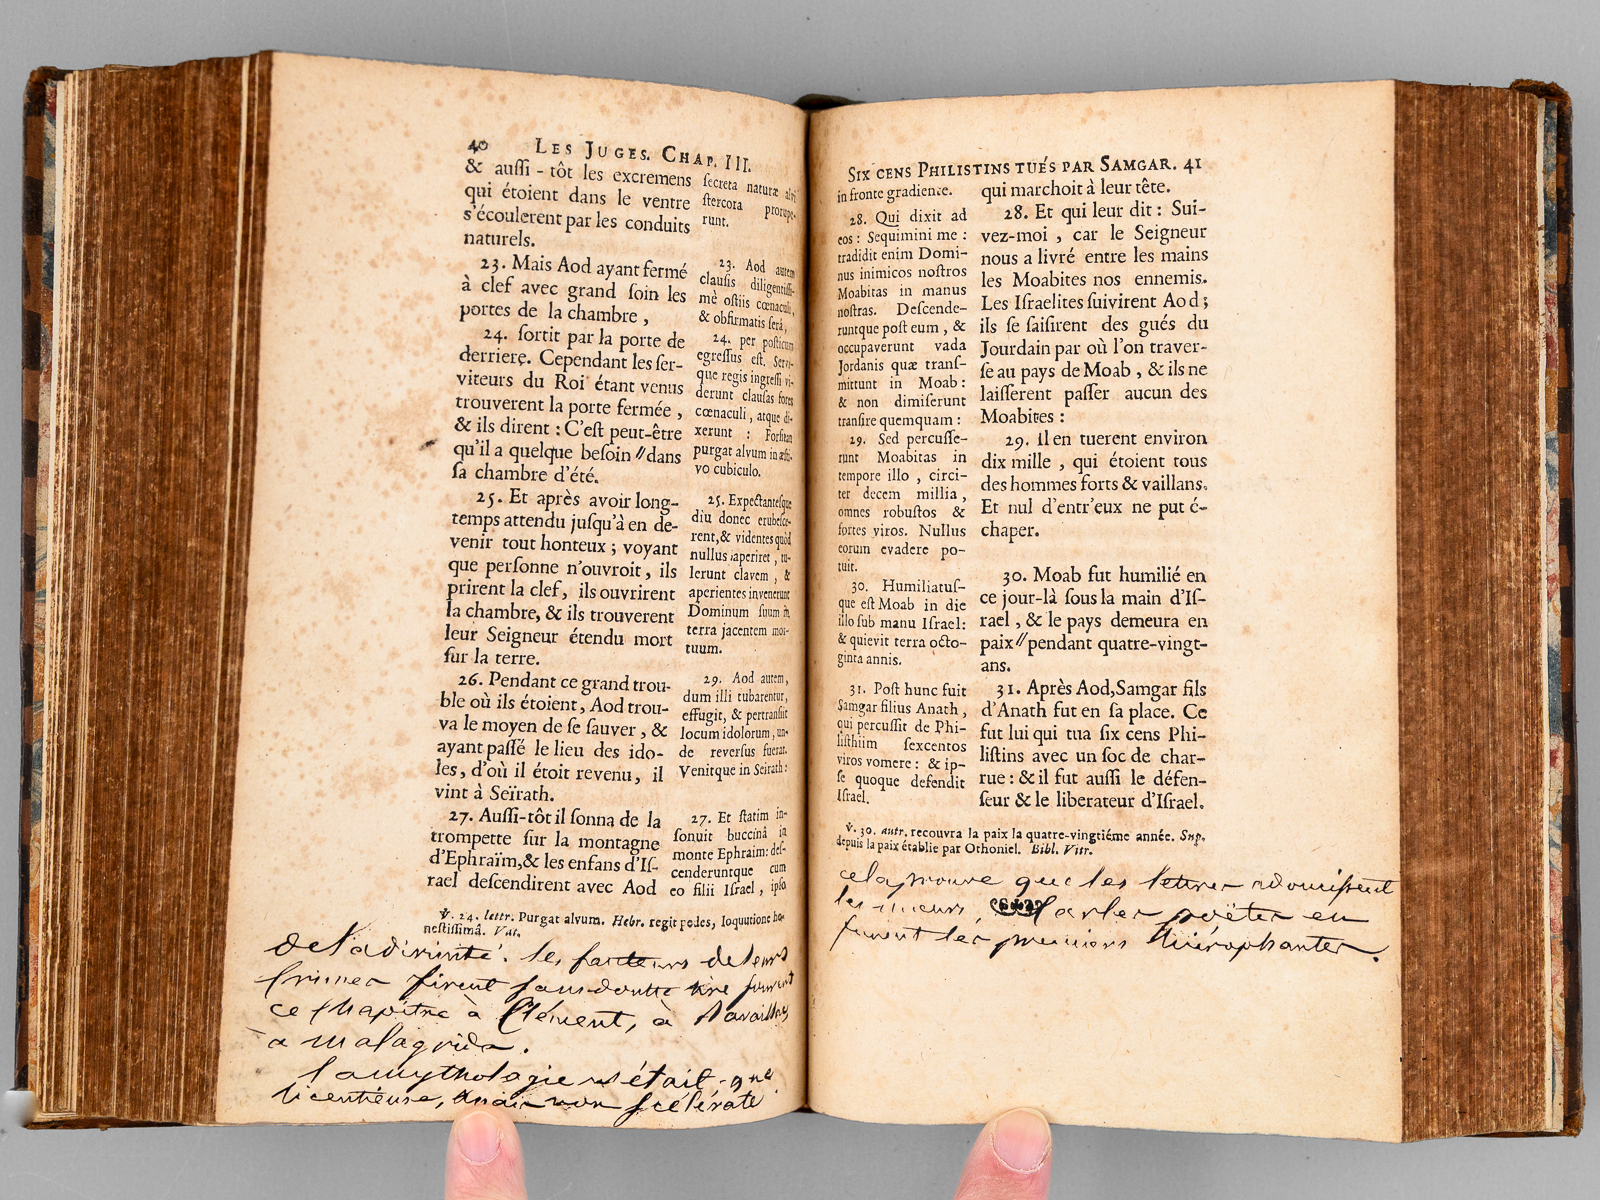 40 LES JUGES. CHAP. III.
& auſſi-tôt les excremens
qui étoient dans le ventre
s'écoulerent par les conduits
naturels.
23. Mais Aod ayant fermé
à clef avec grand ſoin les
portes de la chambre,
24. ſortit par la porte de
derriere. Cependant les ſer-
viteurs du Roi étant venus
trouverent la porte fermée,
& ils dirent : C'eſt peut-être
qu'il a quelque beſoin // dans
ſa chambre d'été.
25. Et après avoir long-
temps attendu juſqu'à en de-
venir tout honteux ; voyant
que perſonne n'ouvroit, ils
prirent la clef, ils ouvrirent
la chambre, & ils trouverent
leur Seigneur étendu mort
ſur la terre.
26. Pendant ce grand trou-
ble où ils étoient, Aod trou-
va le moyen de ſe ſauver, &
ayant paſſé le lieu des ido-
les, d'où il étoit revenu, il
vint à Seïrath.
27. Auſſi-tôt il ſonna de la
trompette ſur la montagne
d'Ephraïm, & les enfans d'Iſ-
rael deſcendirent avec Aod
ſecreta naturæ alvi
ſtercora prorupe-
runt.
23. Aod autem
clauſis diligentiſſi-
mè oſtiis cœnaculi,
& obfirmatis ſerâ,
24. per poſticum
egreſſus eſt. Servi-
que regis ingreſſi vi-
derunt clauſas fores
cœnaculi, atque di-
xerunt : Forſitan
purgat alvum in æſti-
vo cubiculo.
25. Expectanteſque
diù donec erubeſce-
rent, & videntes quòd
nullus aperiret, tu-
lerunt clavem, &
aperientes invenerunt
Dominum ſuum in
terra jacentem mor-
tuum.
29. Aod autem,
dum illi turbarentur,
effugit, & pertranſiit
locum idolorum, un-
de reverſus fuerat.
Venitque in Seirath :
27. Et ſtatim in-
ſonuit buccinâ in
monte Ephraim : deſ-
cenderuntque cum
eo filii Iſrael, ipſo
℣. 24. lettr. Purgat alvum. Hebr. regit pedes, loquutione ho-
neſtiſſimâ. Vat.
de la divinité. les fauteurs de leurs
crimes firent sans doute lire
ce chapitre à Clément, à Ravaillac,
à malagrida.
la mythologie n'était que
licentieuse, mais non scélérate.
SIX CENS PHILISTINS TUÉS PAR SAMGAR. 41
in fronte gradience.
28. Qui dixit ad
eos : Sequimini me :
tradidit enim Domi-
nus inimicos noſtros
Moabitas in manus
noſtras. Deſcende-
runtque poſt eum, &
occupaverunt vada
Jordanis quæ tranſ-
mittunt in Moab :
& non dimiſerunt
tranſire quemquam :
29. Sed percuſſe-
runt Moabitas in
tempore illo, circi-
ter decem millia,
omnes robuſtos &
fortes viros. Nullus
eorum evadere po-
tuit.
30. Humiliatuſ-
que eſt Moab in die
illo ſub manu Iſrael :
& quievit terra octo-
ginta annis.
31. Poſt hunc fuit
Samgar filius Anath,
qui percuſſit de Phi-
liſthiim ſexcentos
viros vomere : & ip-
ſe quoque defendit
Iſrael.
qui marchoit à leur tête.
28. Et qui leur dit : Sui-
vez-moi, car le Seigneur
nous a livré entre les mains
les Moabites nos ennemis.
Les Iſraelites ſuivirent Aod ;
ils ſe ſaiſirent des gués du
Jourdain par où l'on traver-
ſe au pays de Moab, & ils ne
laiſſerent paſſer aucun des
Moabites :
29. Il en tuerent environ
dix mille, qui étoient tous
des hommes forts & vaillans.
Et nul d'entr'eux ne put é-
chaper.
30. Moab fut humilié en
ce jour-là ſous la main d'Iſ-
rael, & le pays demeura en
paix // pendant quatre-vingt-
ans.
31. Après Aod, Samgar fils
d'Anath fut en ſa place. Ce
fut lui qui tua ſix cens Phi-
liſtins avec un ſoc de char-
rue : & il fut auſſi le défen-
ſeur & le liberateur d'Iſrael.
℣. 30. autr. recouvra la paix la quatre-vingtiéme année. Sup.
depuis la paix établie par Othoniel. Bibl. Vitr.
cela prouve que les lettres adoucissent
les mœurs, car les poëtes en
furent les premiers hiérophantes.